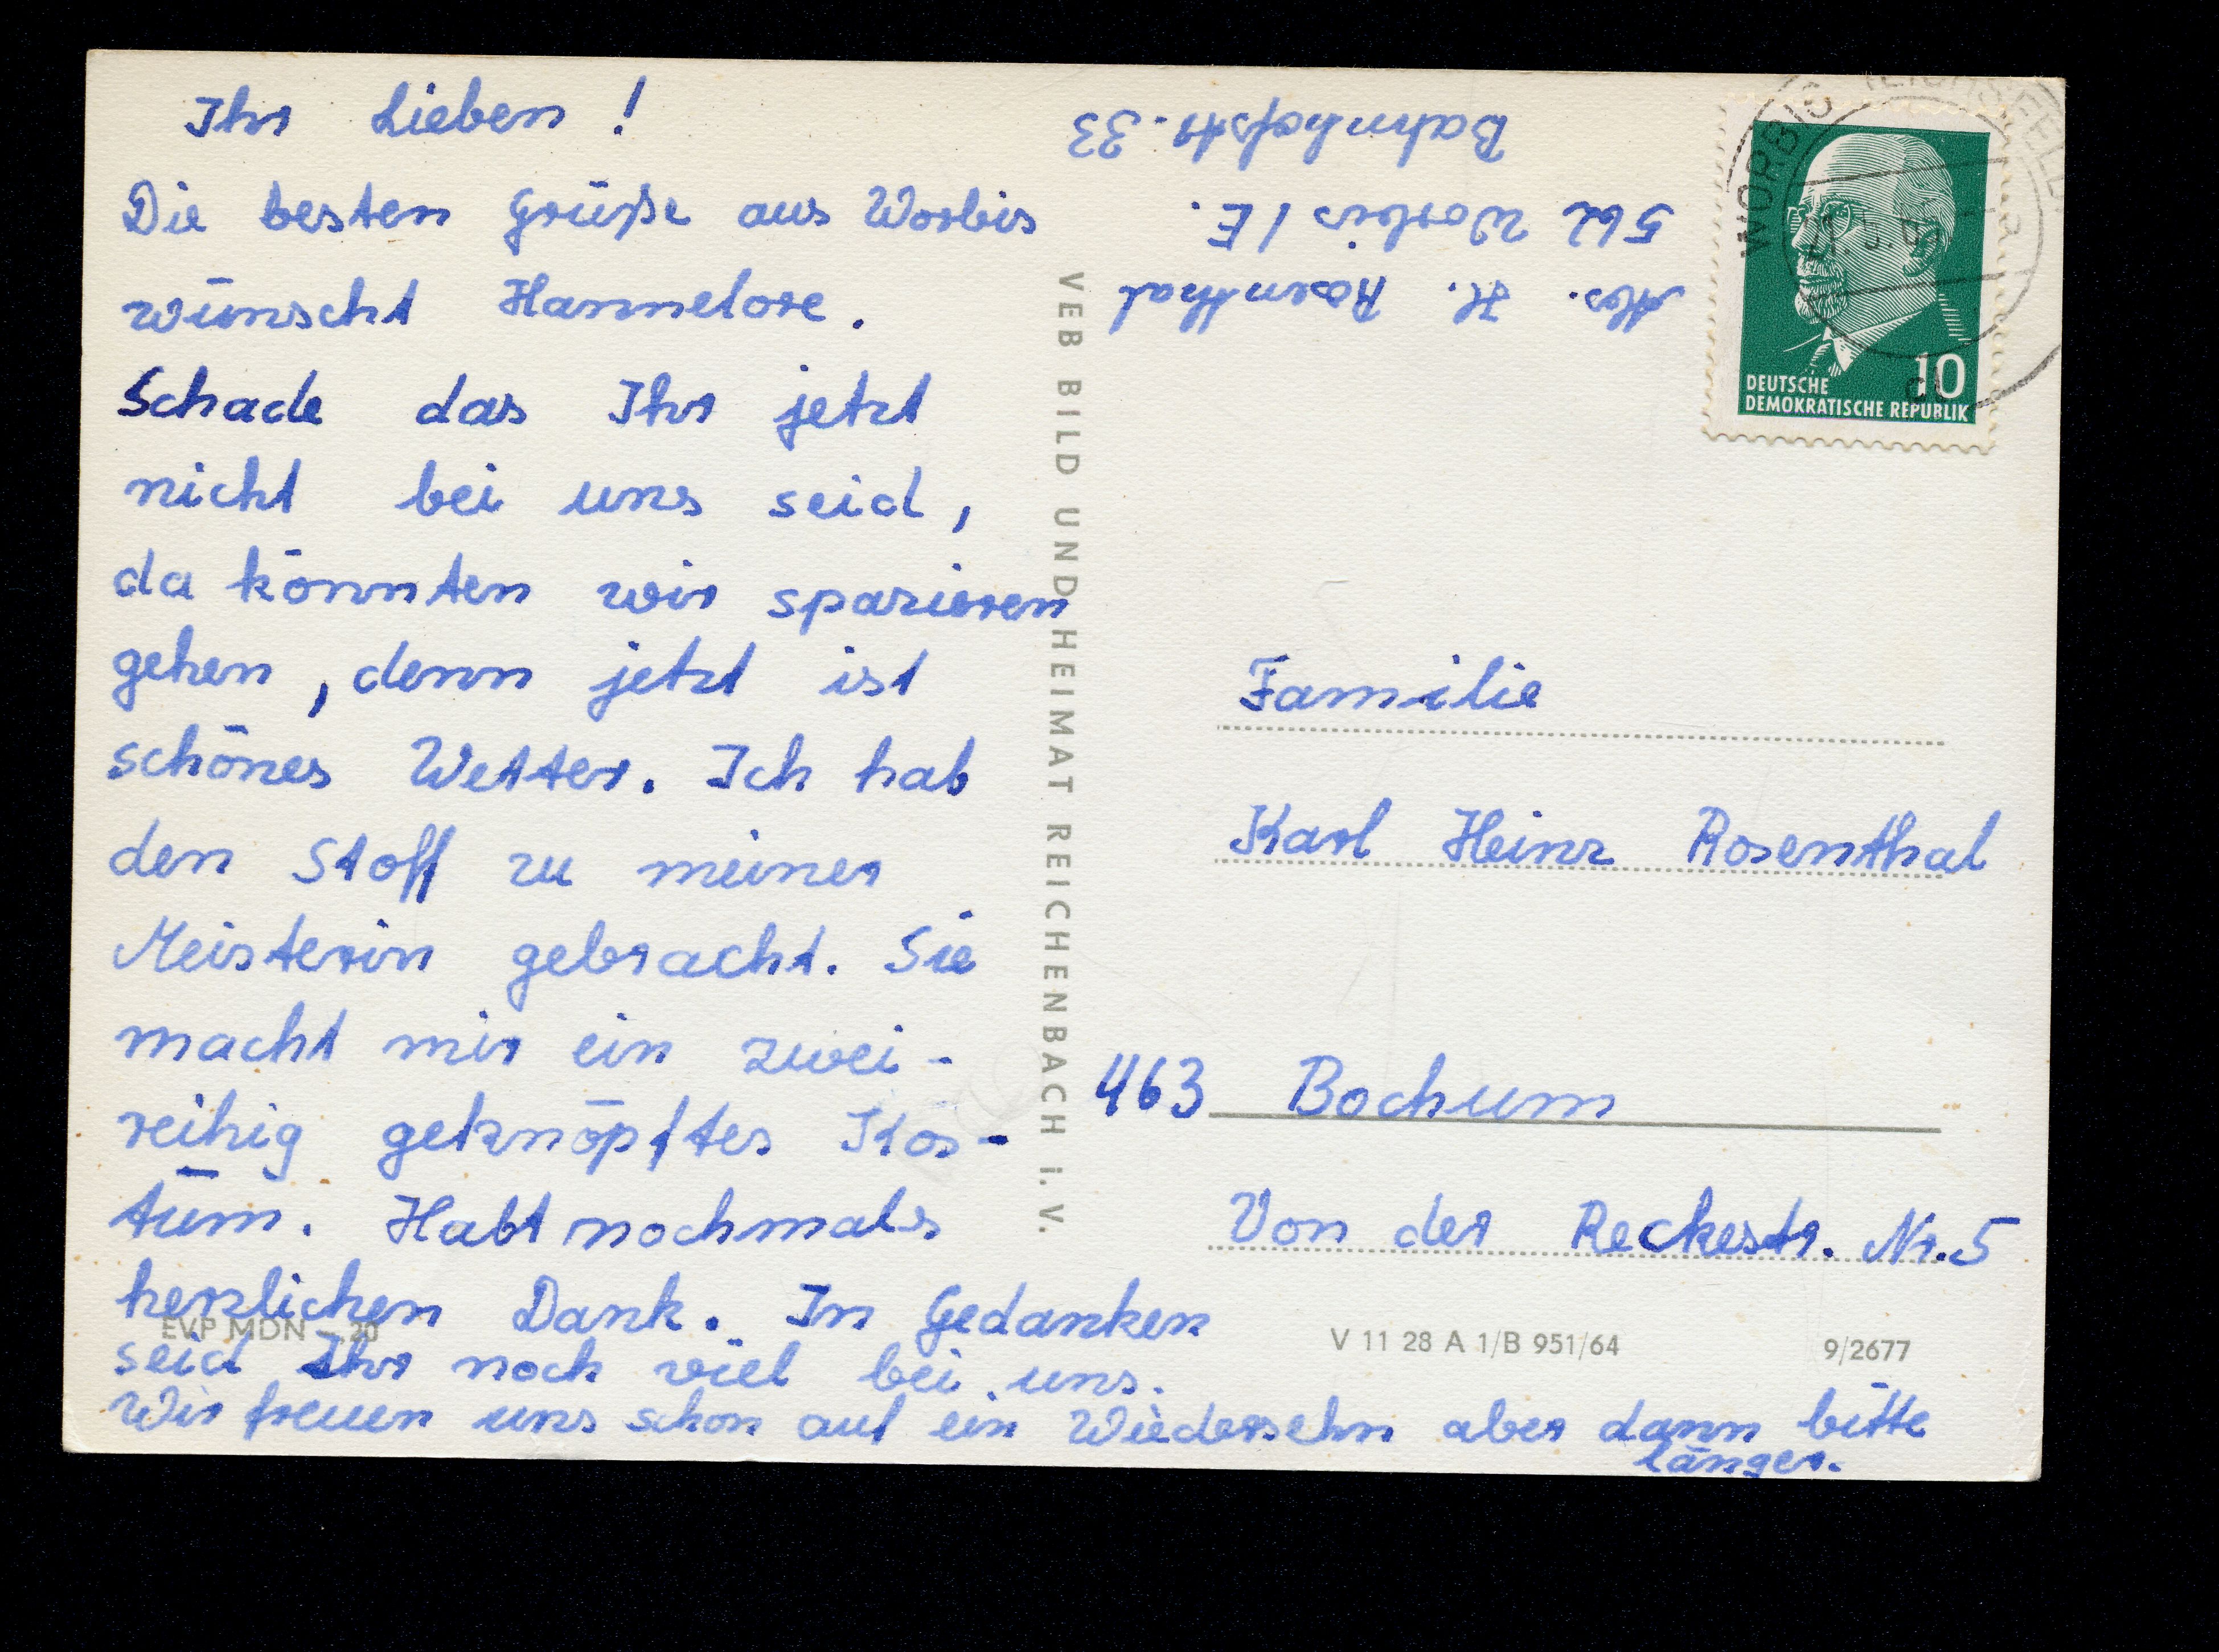 Ihr Lieben!
Die besten Grüße aus Worbis
wünscht Hannelore.
Schade das Ihr jetzt
nicht bei uns seid,
da könnten wir spazieren
gehen, denn jetzt ist
schönes Wetter. Ich hab
den Stoff zu meiner
Meisterin gebracht. Sie
macht mir ein zwei-
reihig geknöpftes Kos-
tüm. Habt nochmals
herzlichen Dank. In Gedanken
seid Ihr noch viel bei uns.
Wir freuen uns schon auf ein Wiedersehn aber dann bitte
länger.
EVP MDN -.20
VEB BILD UND HEIMAT REICHENBACH i. V.
Abs. H. Rosenthal
562 Worbis / E.
Bahnhofstr. 33
WORBIS (EICHSFELD)
10
DEUTSCHE
DEMOKRATISCHE REPUBLIK
Familie
Karl Heinz Rosenthal
463 Bochum
Von der Reckestr. Nr. 5
V 11 28 A 1/B 951/64
9/2677